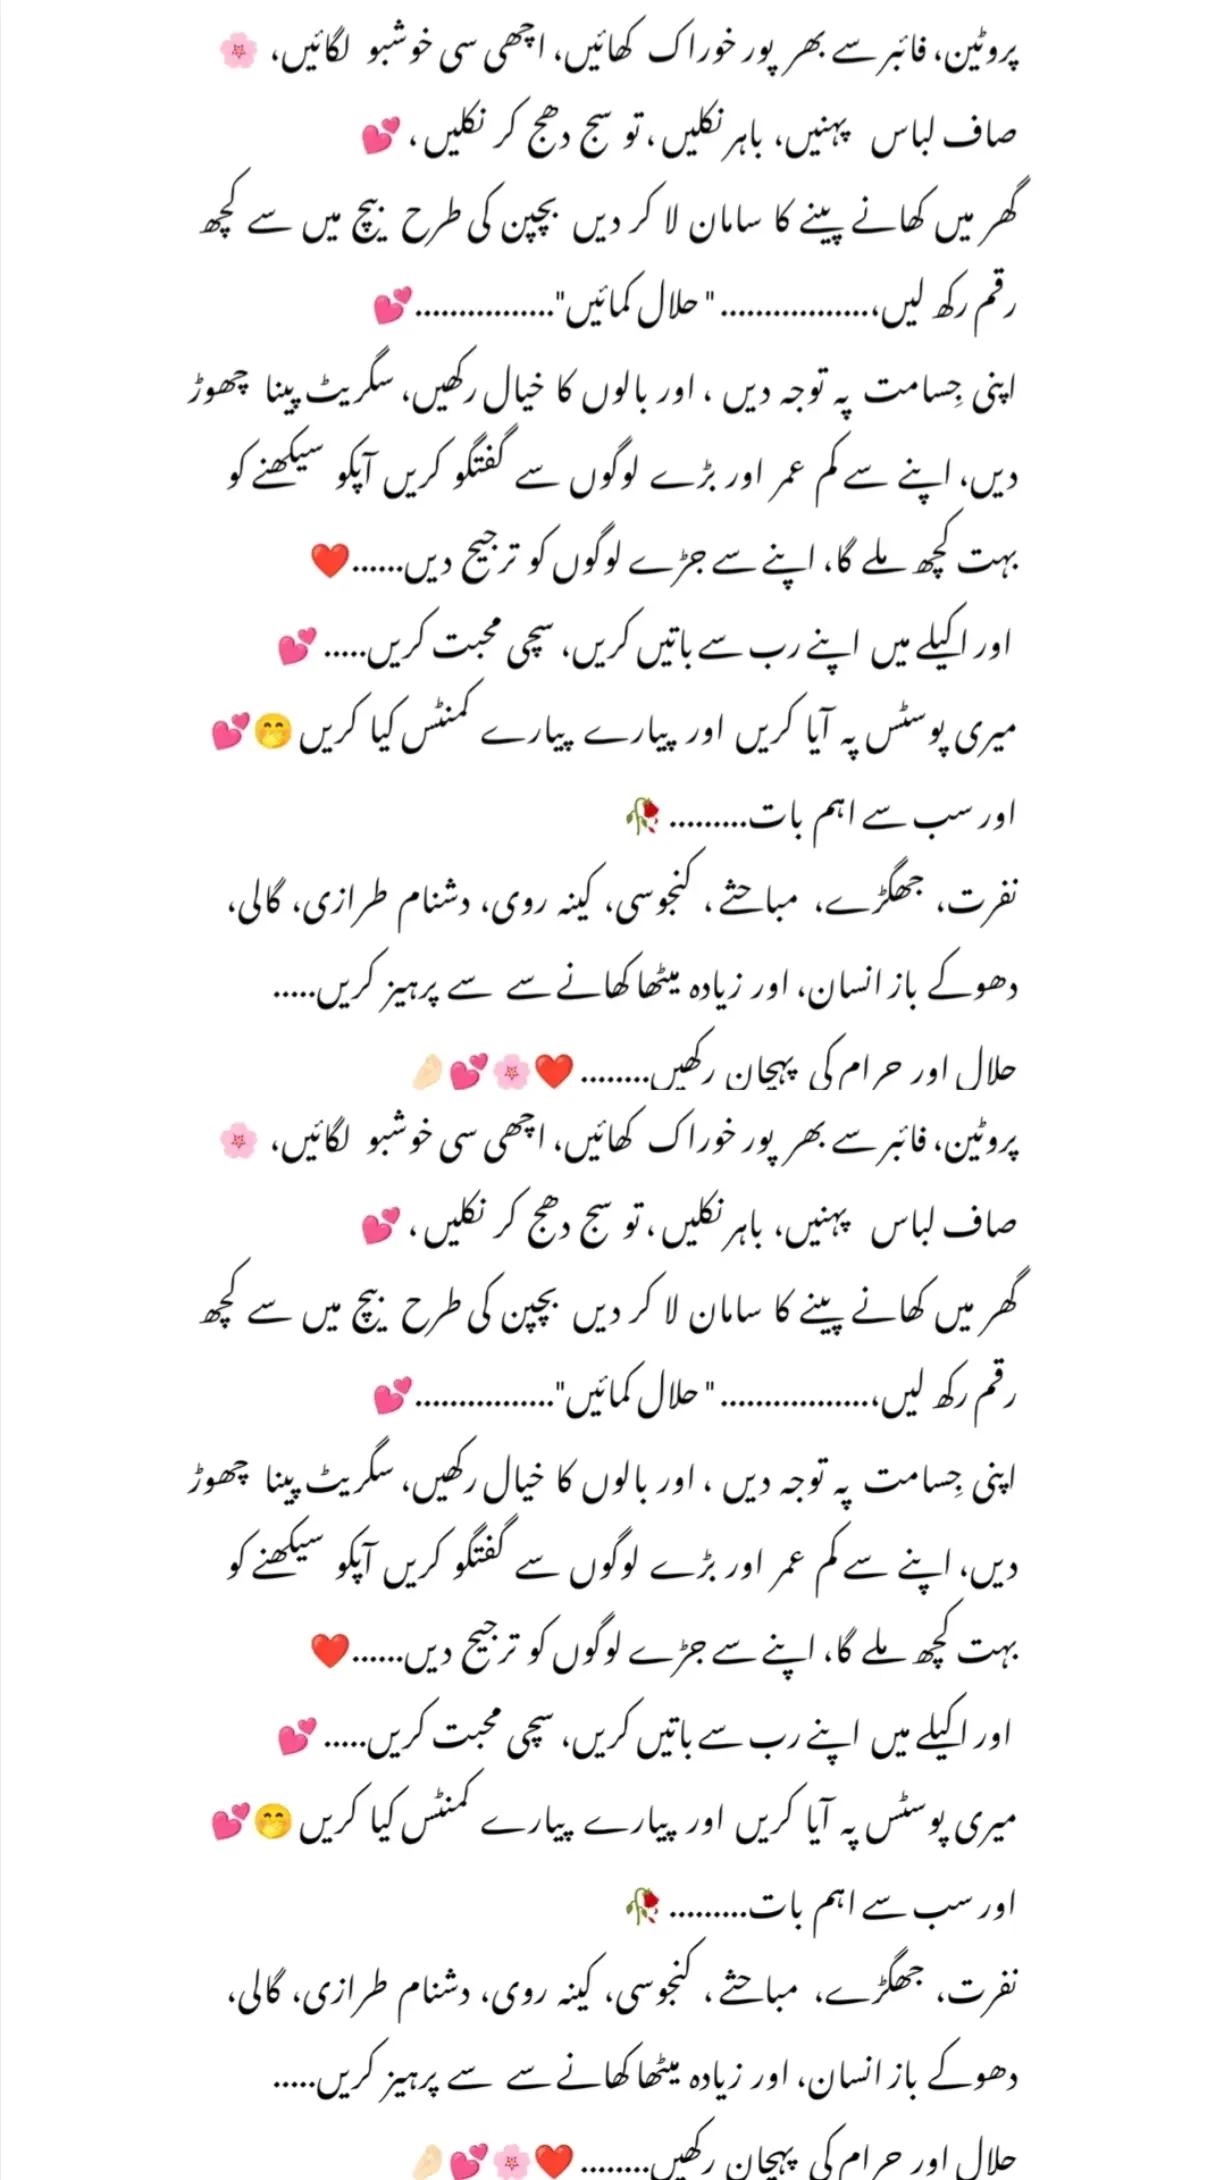 پروٹین، فائبر سے بھر پور خوراک کھائیں، اچھی سی خوشبو لگائیں، 🌸
صاف لباس پہنیں، باہر نکلیں، تو سج دھج کر نکلیں، 💕
گھر میں کھانے پینے کا سامان لا کر دیں بچپن کی طرح بیچ میں سے کچھ
رقم رکھ لیں،................. " حلال کمائیں"................💕
اپنی جِسامت پہ توجہ دیں ، اور بالوں کا خیال رکھیں، سگریٹ پینا چھوڑ
دیں، اپنے سے کم عمر اور بڑے لوگوں سے گفتگو کریں آپکو سیکھنے کو
بہت کچھ ملے گا، اپنے سے جڑے لوگوں کو ترجیح دیں......❤️
اور اکیلے میں اپنے رب سے باتیں کریں، سچی محبت کریں..... 💕
میری پوسٹس پہ آیا کریں اور پیارے پیارے کمنٹس کیا کریں 🤭💕
اور سب سے اہم بات......... 🥀
نفرت، جھگڑے، مباحثے ، کنجوسی، کینہ روی، دشنام طرازی، گالی،
دھوکے باز انسان، اور زیادہ میٹھا کھانے سے سے پرہیز کریں.....
حلال اور حرام کی پہچان رکھیں........ ❤️🌸💕🤌🏻
پروٹین، فائبر سے بھر پور خوراک کھائیں، اچھی سی خوشبو لگائیں، 🌸
صاف لباس پہنیں، باہر نکلیں، تو سج دھج کر نکلیں، 💕
گھر میں کھانے پینے کا سامان لا کر دیں بچپن کی طرح بیچ میں سے کچھ
رقم رکھ لیں،................. " حلال کمائیں"................💕
اپنی جِسامت پہ توجہ دیں ، اور بالوں کا خیال رکھیں، سگریٹ پینا چھوڑ
دیں، اپنے سے کم عمر اور بڑے لوگوں سے گفتگو کریں آپکو سیکھنے کو
بہت کچھ ملے گا، اپنے سے جڑے لوگوں کو ترجیح دیں......❤️
اور اکیلے میں اپنے رب سے باتیں کریں، سچی محبت کریں..... 💕
میری پوسٹس پہ آیا کریں اور پیارے پیارے کمنٹس کیا کریں 🤭💕
اور سب سے اہم بات......... 🥀
نفرت، جھگڑے، مباحثے ، کنجوسی، کینہ روی، دشنام طرازی، گالی،
دھوکے باز انسان، اور زیادہ میٹھا کھانے سے سے پرہیز کریں.....
حلال اور حرام کی پہچان رکھیں........ ❤️🌸💕🤌🏻